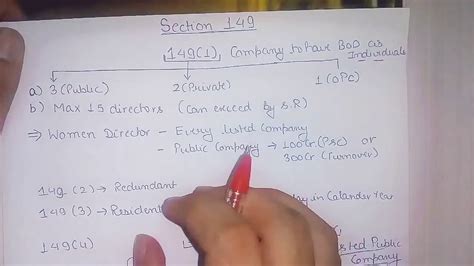 Section 149
149(1) Company to have BoD as
Individuals
a) 3(Public) 2(Private) 1(OPC)
b) Max 15 directors (Can exceed by S.R)
⇒ Women Director - Every listed Company
- Public Company → 100Cr(PSC) or
300Cr(Turnover)
149(2) - Redundant
149(3) - Resident day in Calander Year
149(4) Public
Company